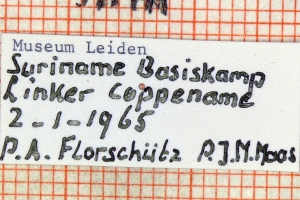 Museum Leiden
Suriname Basiskamp
Linker Coppename
2-1-1965
P.A. Florschütz P.J.M. Maas